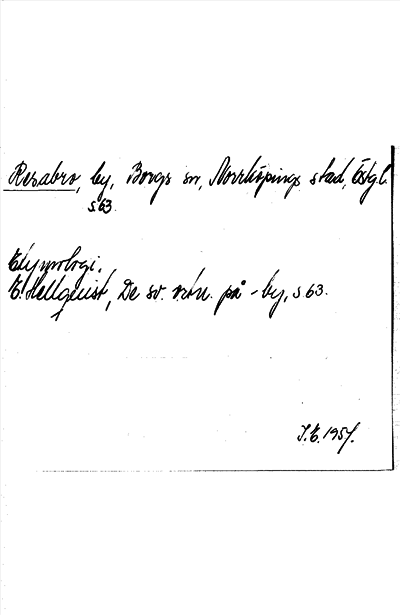 Resabro, by, Borgs sn, Norrköpings stad, Östgl.
s. 63.
Etymologi.
E. Hellquist, De sv. ortn. på -by, s 63.
I.E. 1957.